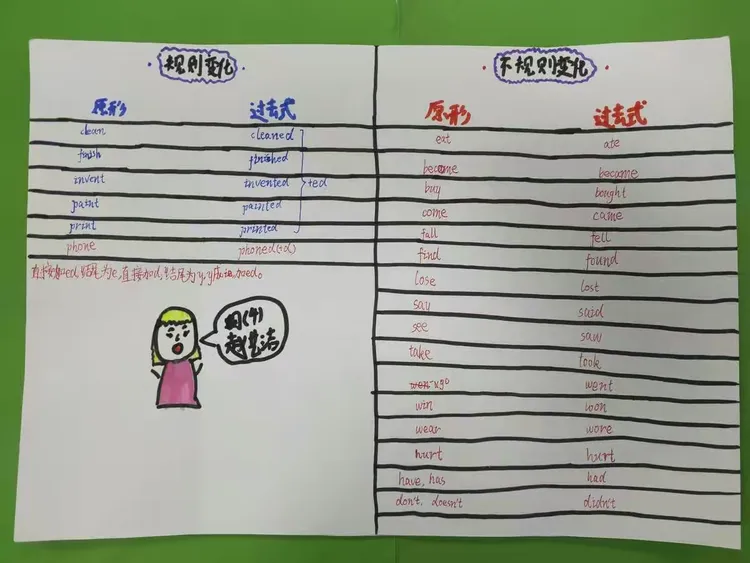 规则变化
原形 过去式
clean cleaned
finish finished
invent invented
paint painted
print printed
+ed
phone phoned(+d)
直接加ed,结尾为e,直接加d,结尾为y,y
不规则变化
原形 过去式
eat ate
become became
buy bought
come came
fall fell
find found
lose lost
say said
see saw
take took
go went
win won
wear wore
hurt hurt
have, has had
don't, doesn't didn't